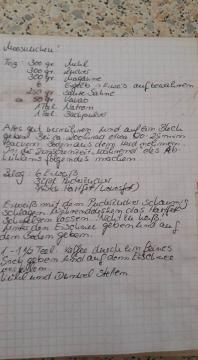 Mooskuchen!
Teig 300 gr Mehl
300 gr Zucker
300 gr Margarine
6 Eigelb - Eiweis aufbewahren
250 gr Saure Sahne
50 gr Kakao
1 Teel Natron
1 Teel Backpulver
Alles gut verrühren und auf ein Blech
geben. Bei 170 Grad etwa 20-25 min
backen. Boden aus dem Herd nehmen
In der Zwischenzeit während des Ab
kühlens folgendes machen
Belag 6 Eiweiß
Puderzucker
Eiweiß mit dem Puderzucker schaumig
schlagen währenddessen das
schmelzen lassen. Nicht zu heiß.
unter den Eischnee geben und auf
dem Boden geben.
Teel Kaffee durch ein feines
Sieb geben und auf dem Eischnee
verteilen
Kühl und Dunkel stellen